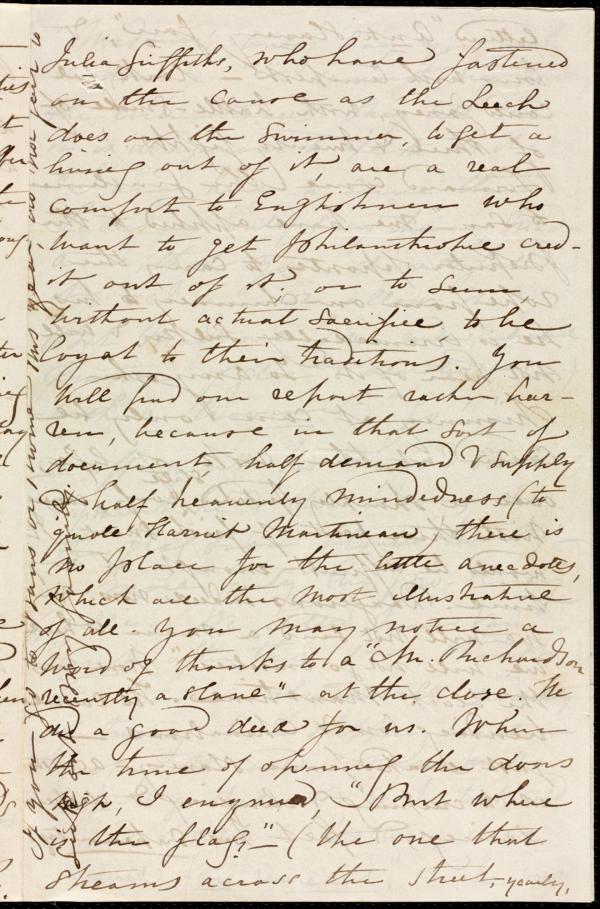 Julia Griffiths, who have fastened
on the cause as the Leech
does on the swimmer, to get a
living out of it, are a real
comfort to Englishmen who
want to get philanthropic cred-
it out of it, or to seem,
without actual sacrifice, to be
loyal to their traditions. You
will find our report rather bar-
ren, because in that sort of
document half demand & supply
& half heavenly mindedness (to
quote Harriet Martineau, there is
no place for the little anecdotes,
which are the most illustrative
of all. You may notice a
word of "thanks to a "Mr. Richardson
recently a slave" - at the close. He
did a good deed for us. When
the time of opening the doors
, I enquired, "But where
is the flag?" - (the one that
streams across the street, yearly,
If you go to Paris or Rome this year, do not fail to